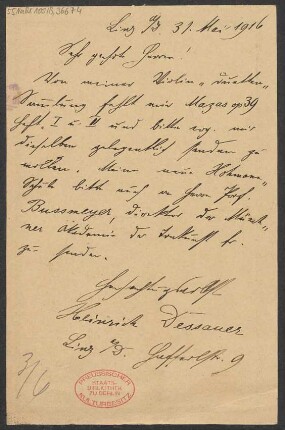 55 Nachl 100/B, 366 7-4
Linz a/D. 31. Mai 1916
Sehr geehrte Herren!
Von meiner Violin „Duetten"
Sammlung fehlt mir Mazas op 39
Heft I u II und bitte mir
dieselben gelegentlich senden zu
wollen. Meine neue „Hohmann"
Schule bitte auch an Herrn Prof.
Bussmeyer, Direktor der Münch-
ner Akademie der Tonkunst
zu senden.
Hochachtungsvollst
Heinrich Dessauer
Linz a/D. Hafferlstr. 9
3/6
PREUSSISCHER
STAATS-
BIBLIOTHEK
ZU BERLIN
KULTURBESITZ